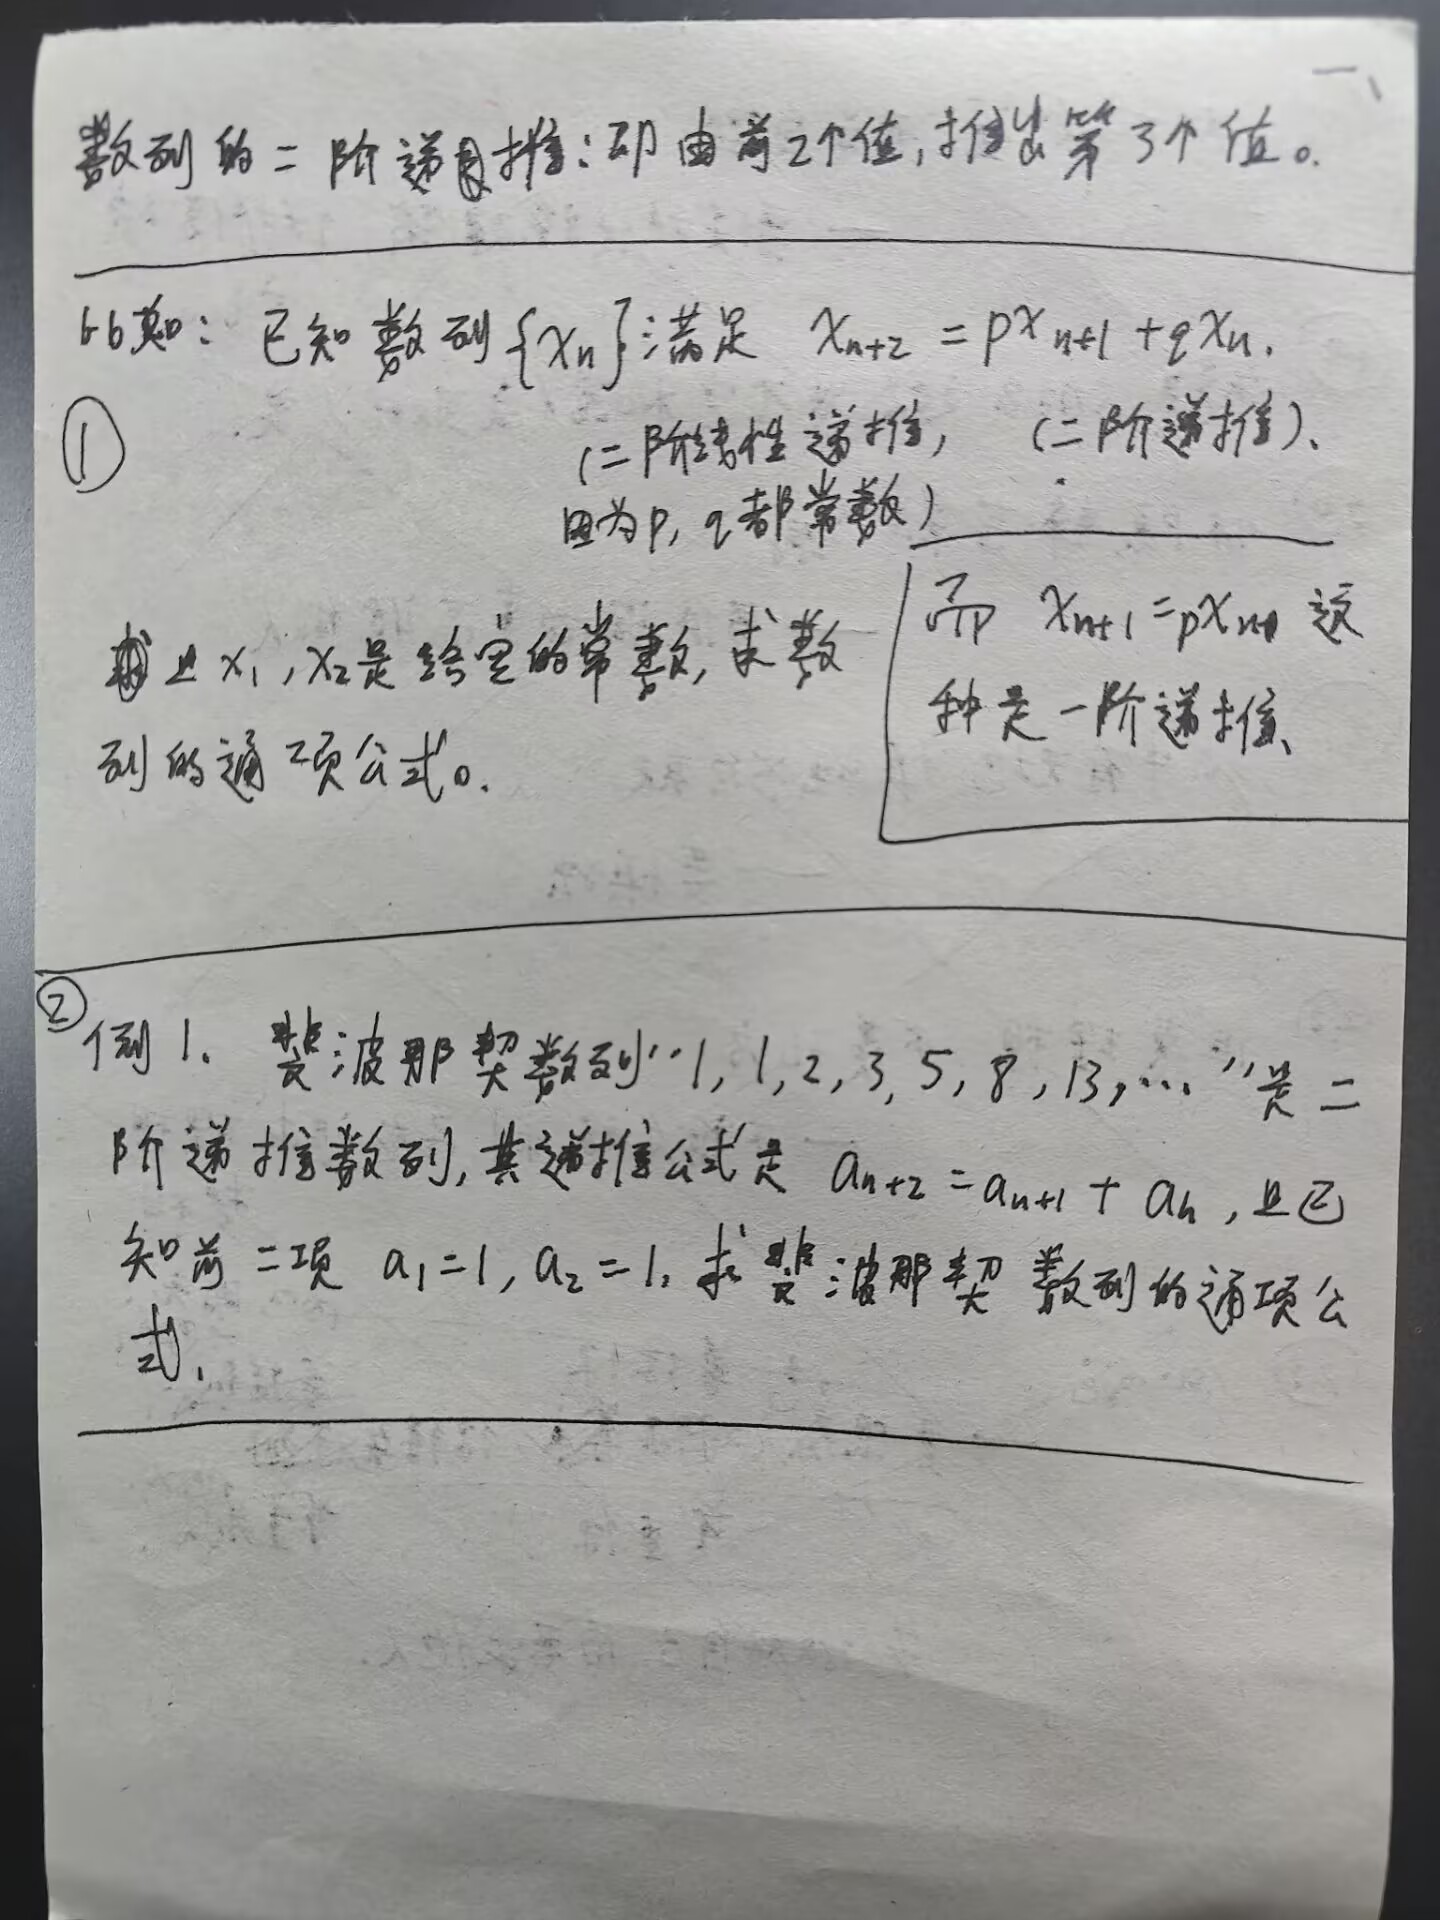 一、
数列的二阶递推：即由前2个值，推出第3个值。
比如：已知数列{xn}满足 xn+2 = pxn+1 + qxn.
①
（二阶线性递推， （二阶递推）、
因为p, q都常数）
且x1, x2是给定的常数，求数
列的通项公式。
而 xn+1 = pxn 这
种是一阶递推、
②
例1. 斐波那契数列“1, 1, 2, 3, 5, 8, 13, …”是二
阶递推数列，其递推公式是 an+2 = an+1 + an，且已
知前二项 a1=1, a2=1. 求斐波那契数列的通项公
式.